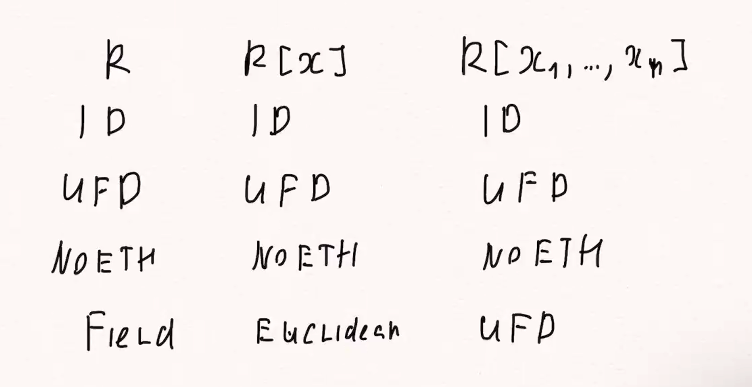 R R[x] R[x₁, ..., xₙ]
ID ID ID
UFD UFD UFD
NOETH NOETH NOETH
Field Euclidean UFD